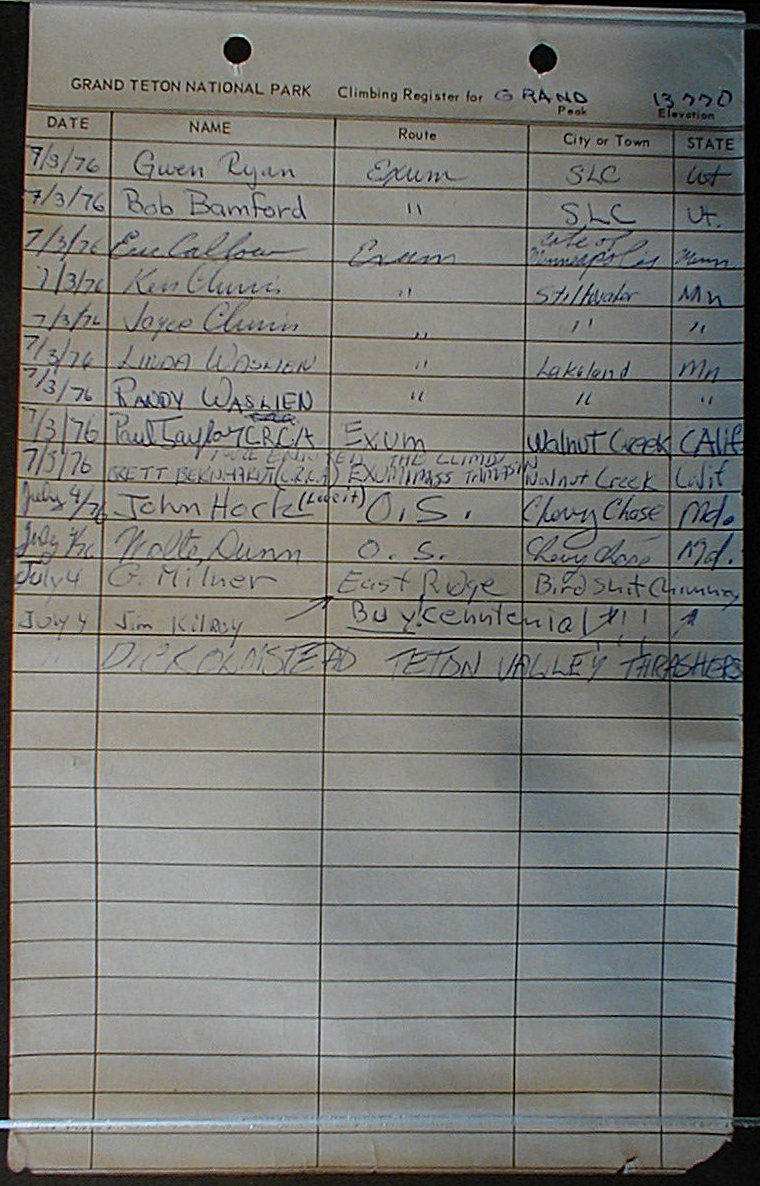 GRAND TETON NATIONAL PARK Climbing Register for GRAND 13770
Peak Elevation
DATE NAME Route City or Town STATE
7/3/76 Gwen Ryan Exum SLC Ut
7/3/76 Bob Bamford " SLC Ut.
7/3/76 Exum Minneapolis Minn
7/3/76 Ken " Stillwater Mn
7/3/76 Joyce " " "
7/3/76 LINDA WASLIEN " Lakeland Mn
7/3/76 RANDY WASLIEN " " "
7/3/76 Paul Taylor C.R.C.A Exum Walnut Creek CAlif
THE CLIMB
7/3/76 BRETT BERNHARDT (C.R.C.A) EXUM Walnut Creek Calif
July 4/76 John Hock O.S. Chevy Chase Md.
July 4/76 Dunn O.S. Chevy Chase Md.
July 4 G. Milner East Ridge Bird Shit Chimney
July 4 Jim Kilroy Buy!centenial!!!
DICK OLMSTEAD TETON VALLEY THRASHERS